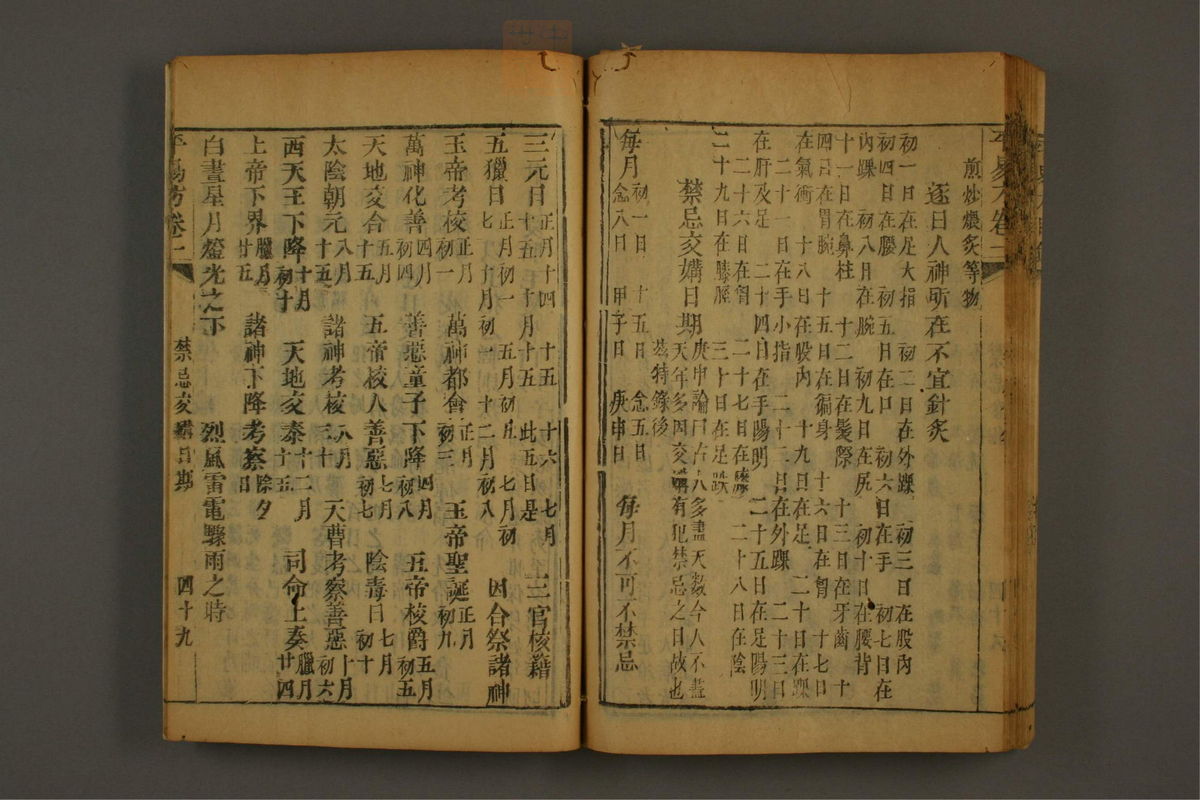 煎炒煨炙等物
逐日人神所在不宜針灸
初一日在足大指 初二日在外踝 初三日在股內
初四日在腰 初五日在口 初六日在手 初七日在
內踝 初八月在腕 初九日在尻 初十日在腰背
十一日在鼻柱 十二日在髮際 十三日在牙齒 十
四日在胃腕 十五日在徧身 十六日在胷 十七日
在氣衝 十八日在股內 十九日在足 二十日在踝
二十一日在手小指 二十二日在外踝 二十三日
在肝及足 二十四日在手陽明 二十五日在足陽明
二十六日在胷 二十七日在膝 二十八日在陰
二十九日在膝脛 三十日在足趺
禁忌交媾日期 庚申論曰古人多盡天數今人不盡
天年多因交媾有犯禁忌之日故也
茲特錄後
每月 初一日 十五日 念五日
念八日 甲子日 庚申日 每月不可不禁忌
三元日 正月十四 十五 十六 七月
十五 十月十五 此五日是 三官核籍
五獵日 正月初一 五月初五 七月初
七 十月初一 十二月初八 因台祭諸神
玉帝考校 正月初一 萬神都會 初三 玉帝聖誕 正月初九
萬神化善 四月初四 善惡童子下降 四月初八 五帝核爵 五月初五
天地交合 五月十五 五帝校人善惡 七月初七 陰毒日 七月初十
太陰朝元 八月十五 諸神考核 八月三十 天曹考察善惡 十月初六
西天王下降 十月初十 天地交泰 十二月十五 司命上奏 臘月廿四
上帝下界 臘月廿五 諸神下降考察 除夕日
白晝星月燈光之下 烈風雷電驟雨之時
卷二 禁忌交媾日期 四十九